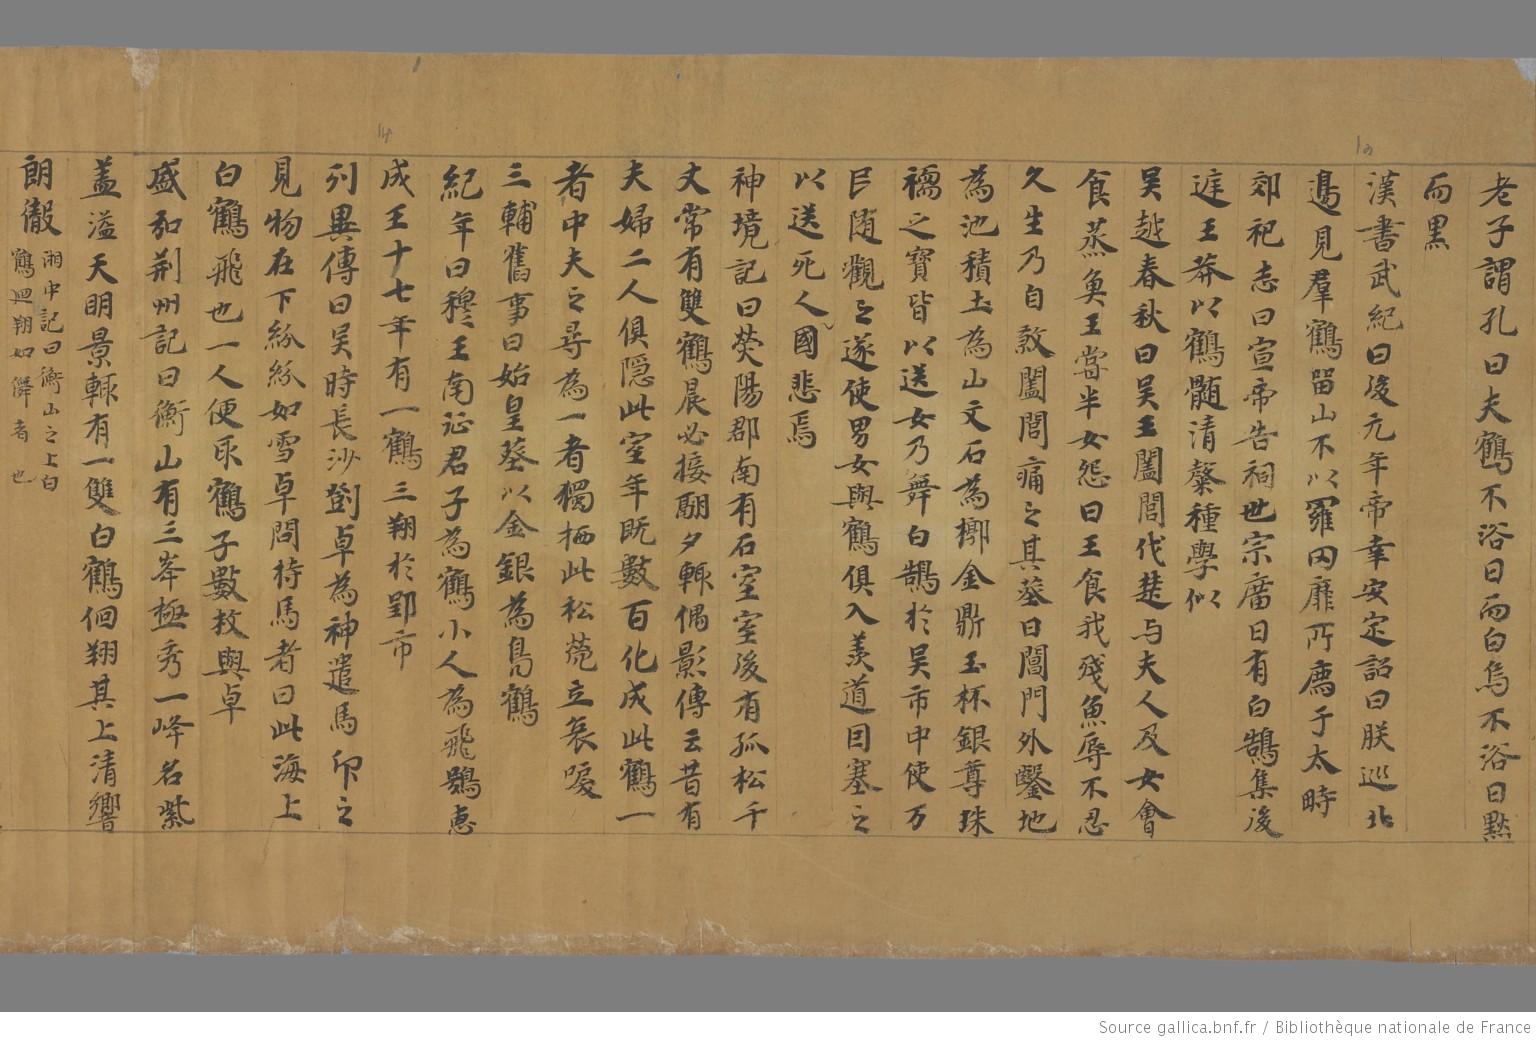 老子謂孔曰夫鶴不浴日而白烏不浴日黙
而黒
漢書武紀曰後元年帝幸安定詔曰朕巡北
邊見羣鶴留山不以羅囚靡所薦于太畤
郊祀志曰宣帝告祠世宗廣日有白鵠集後
逹王莽以鶴髄清槩種學似
吴越春秋曰吴王闔閭伐楚与夫人及女會
食蒸魚王嘗半女怨曰王食我殘魚辱不忍
久生乃自煞闔閭痛之其葬日閶門外鑿地
為池積土為山文石為槨金鼎玉杯銀尊珠
襦之寶皆以送女乃舞白鵠於吴市中使万
民随觀之遂使男女與鶴俱入羨道因塞之
以送死人國悲焉
神境記曰熒陽郡南有石室室後有孤松千
丈常有雙鶴晨必接翮夕輙偶影傳云昔有
夫婦二人俱隠此室年既數百化成此鶴一
者中夫之尋為一者獨栖此松蔸立哀㗀
三輔舊事曰始皇葬以金銀為鳬鶴
紀年曰穆王南征君子為鶴小人為飛鴞恵
成王十七年有一鶴三翔於郢市
列異傳曰吴時長沙劉卓為神遣馬卬之
見物在下紛紛如雪卓問持馬者曰此海上
白鶴飛也一人便取鶴子數枚與卓
盛弘荊州記曰衡山有三峯極秀一峰名紫
盖溢天明景輙有一雙白鶴徊翔其上清響
朗徹
湘中記曰衡山之上白
鶴迴翔如儛者也
14
Source gallica.bnf.fr / Bibliothèque nationale de France